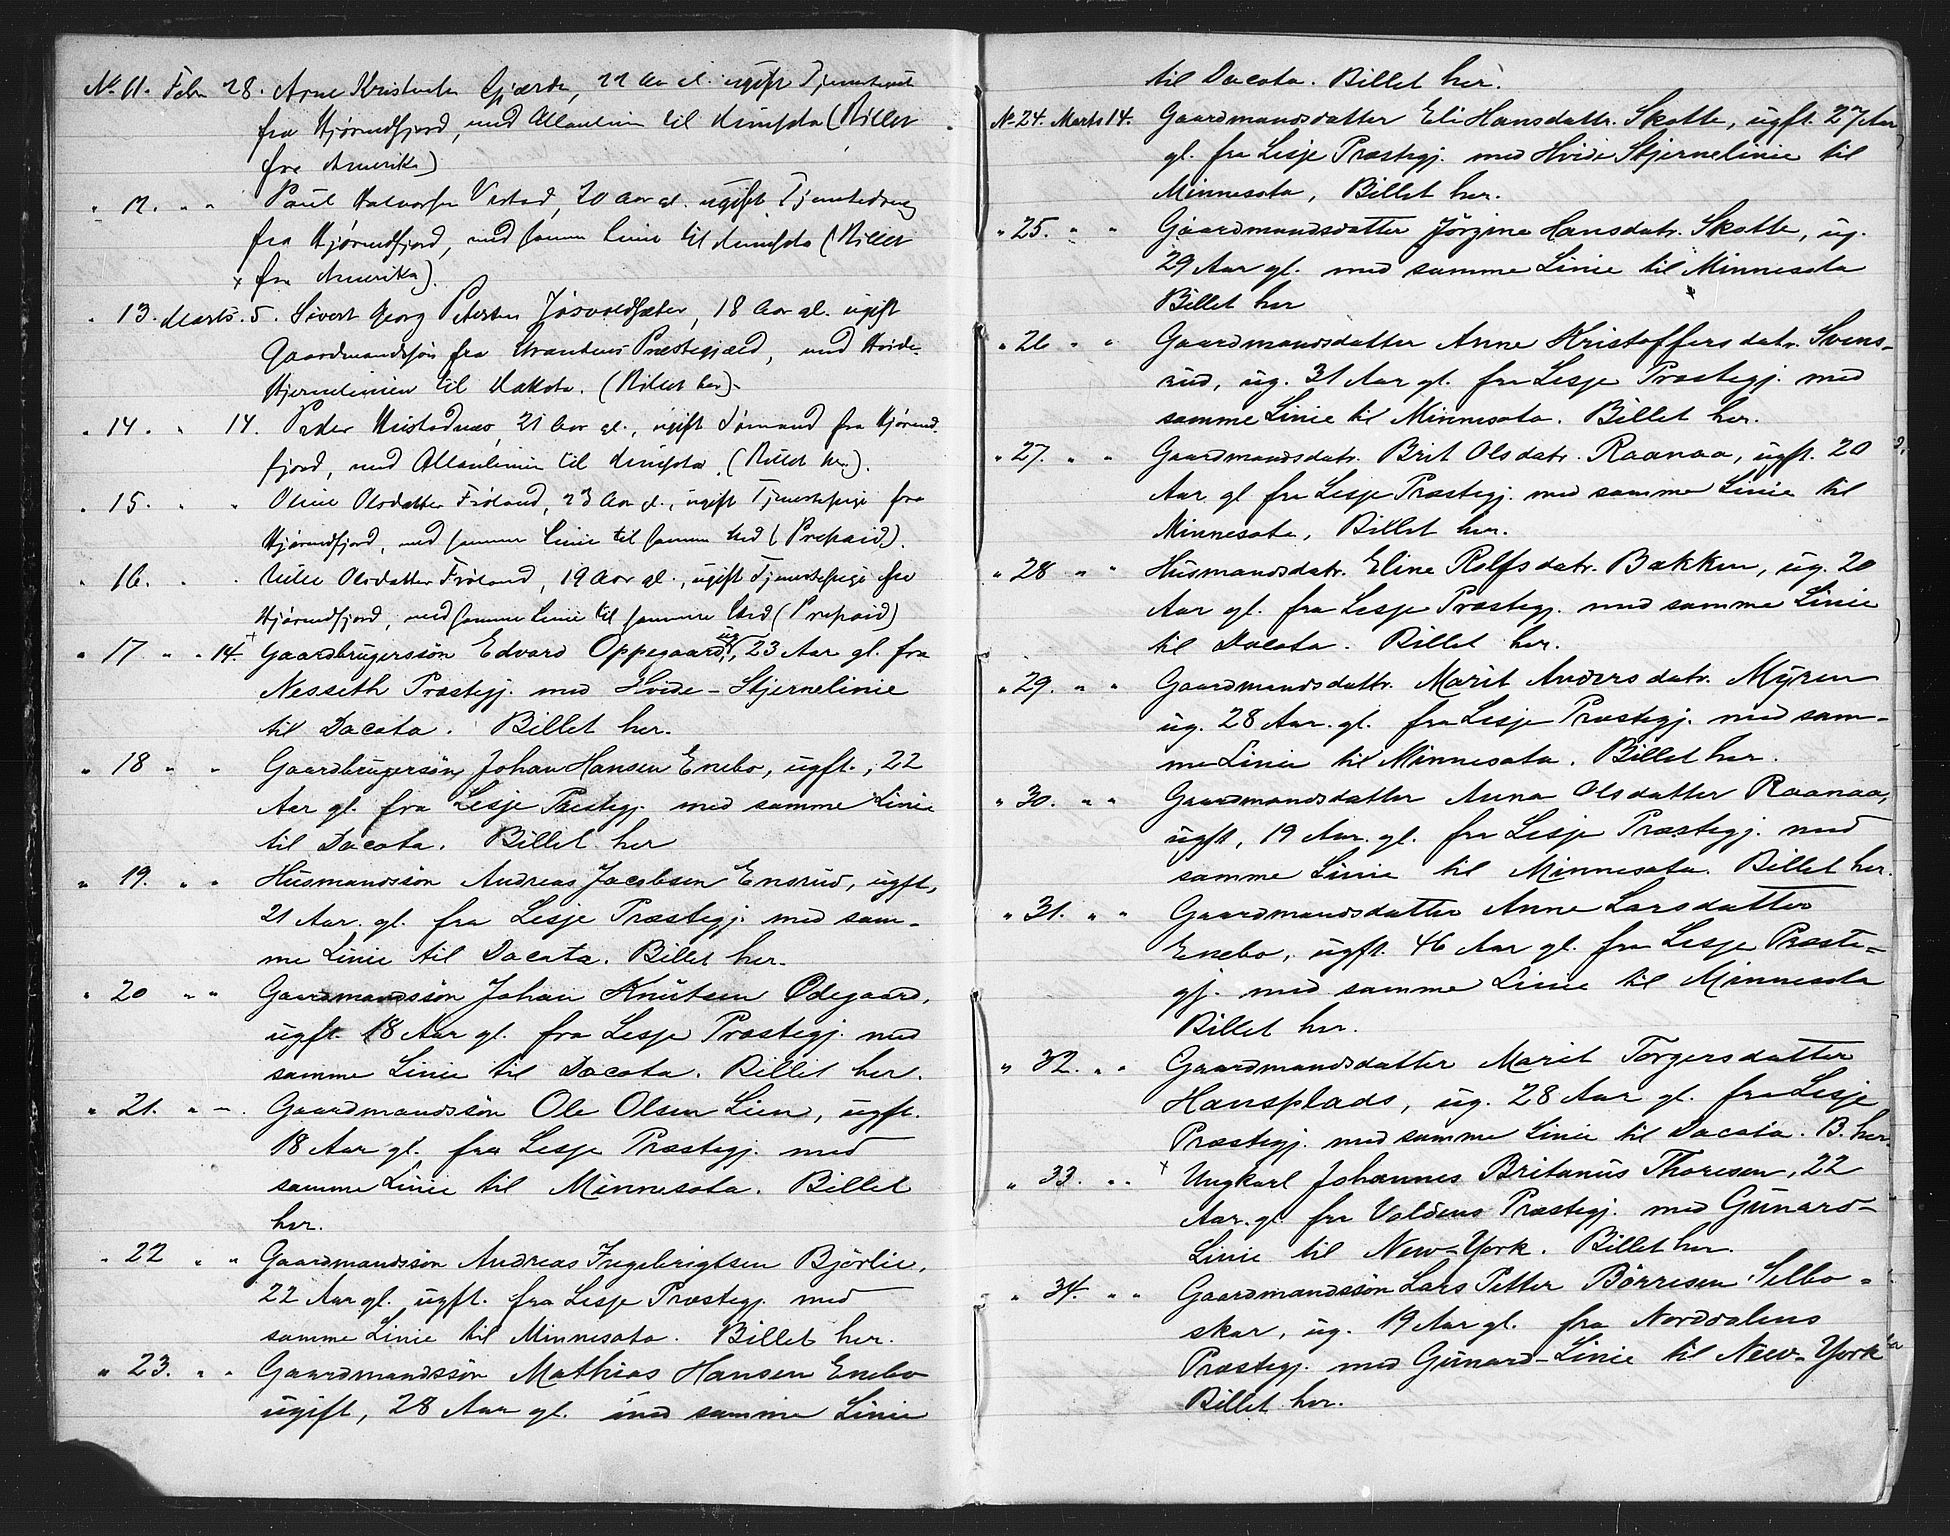 No 11. Febr 28. Arne Kristensen Gjærde, 22 Aar gl. ugift Tjenestekarl
fra Hjørendfjord, med Allanlinien til (Billet
fra Amerika)
" 12. " " Paul Halvorsen Vistad, 20 Aar gl. ugift Tjenestedreng
fra Hjørendfjord, med samme Linie til (Billet
fra Amerika).
" 13. Marts. 5. Sivert Georg Petersen 18 Aar gl. ugift
Gaardmandssøn fra Præstegjæld, med Hvide-
Stjernelinien til Dakota. (Billet her).
" 14. " 14. Peder Hustadnæs, 21 Aar gl., ugift Sømand fra Hjørend-
fjord, med Allanlinien til (Billet her).
" 15. " " Oline Olsdatter Frøland, 23 Aar gl., ugift Tjenestepige fra
Hjørendfjord, med samme Linie til samme Sted (Prepaid).
" 16. " " Olsdatter Frøland, 19 Aar gl., ugift Tjenestepige fra
Hjørendfjord, med samme Linie til samme Sted (Prepaid)
" 17 " " 14. Gaardbrugerssön Edvard Oppegaard, ug. 23 Aar gl. fra
Nesseth Præstegj. med Hvide-Stjernelinie
til Dacota. Billet her.
" 18 " " Gaardbrugersön Johan Hansen Enebo, ugft., 22
Aar gl. fra Lesje Præstegj. med samme Linie
til Dacota. Billet her
" 19. " " Husmandssön Andreas Jacobsen Ensrud, ugft,
21 Aar. gl. fra Lesje Præstegj. med sam-
me Linie til Dacota. Billet her.
" 20 " " Gaardmandssön Johan Knutsen Ödegaard,
ugft. 18 Aar gl. fra Lesje Præstegj. med
samme Linie til Dacota. Billet her.
" 21. " –. Gaardmandssön Ole Olsen Lien, ugft.
18 Aar gl. fra Lesje Præstegj. med
samme Linie til Minnesota. Billet
her.
" 22 " " Gaardmandssön Andreas Ingebrigtsen Björlie,
22 Aar gl. ugft. fra Lesje Præstegj. med
samme Linie til Minnesota. Billet her.
" 23. " " Gaardmandssön Mathias Hansen Enebo
ugift, 28 Aar gl. med samme Linie
til Dacota. Billet her.
No 24. Marts 14. Gaardmandsdatter Eli Hansdattr. Skotte, ugft. 27 Aar
gl. fra Lesje Præstegj. med Hvide Stjernelinie til
Minnesota, Billet her.
" 25. " " Gaardmandsdatter Jörgine Hansdatr. Skotte, ug.
29 Aar gl. med samme Linie til Minnesota
Billet her
" 26 " " Gaardmandsdatter Anne Kristoffersdatr. Svens-
rud, ug. 31 Aar gl. fra Lesje Præstegj. med
samme Linie til Minnesota. Billet her.
" 27. " " Gaardmandsdatr. Brit Olsdatr. Raanaa, ugft. 20
Aar gl fra Lesje Præstegj. med samme Linie til
Minnesota, Billet her.
" 28 " " Husmandsdatr. Eline Rolfsdatr. Bakken, ug. 20
Aar gl. fra Lesje Præstegj. med samme Linie
til Dacota. Billet her.
" 29. " " Gaardmandsdattr. Marit Andersdatr. Myren
ug. 28 Aar. gl. fra Lesje Præstegj. med sam-
me Linie til Minnesota. Billet her.
" 30. " " Gaardmandsdatter Anna Olsdatter Raanaa,
ugft, 19 Aar. gl. fra Lesje Præstegj. med
samme Linie til Minnesota. Billet her.
" 31. " " Gaardmandsdatter Anne Larsdatter
Enebo, ugft. 46 Aar gl. fra Lesje Præste-
gj. med samme Linie til Minnesota
Billet her.
" 32. " " Gaardmandsdatter Marit Torgersdatter
Hansplads, ug. 28 Aar gl. fra Lesje
Præstegj. med samme Linie til Dacota. B. her.
" 33. " " Ungkarl Johannes Britanus Thoresen, 22
Aar. gl fra Voldens Præstegj. med Gunard-
Linie til New-York. Billet her.
" 34. " " Gaardmandssön Lars Petter Börresen Selbo-
skar, ug. 19 Aar gl. fra Norddalens
Præstegj. med Gunard-Linie til New-York
Billet her.